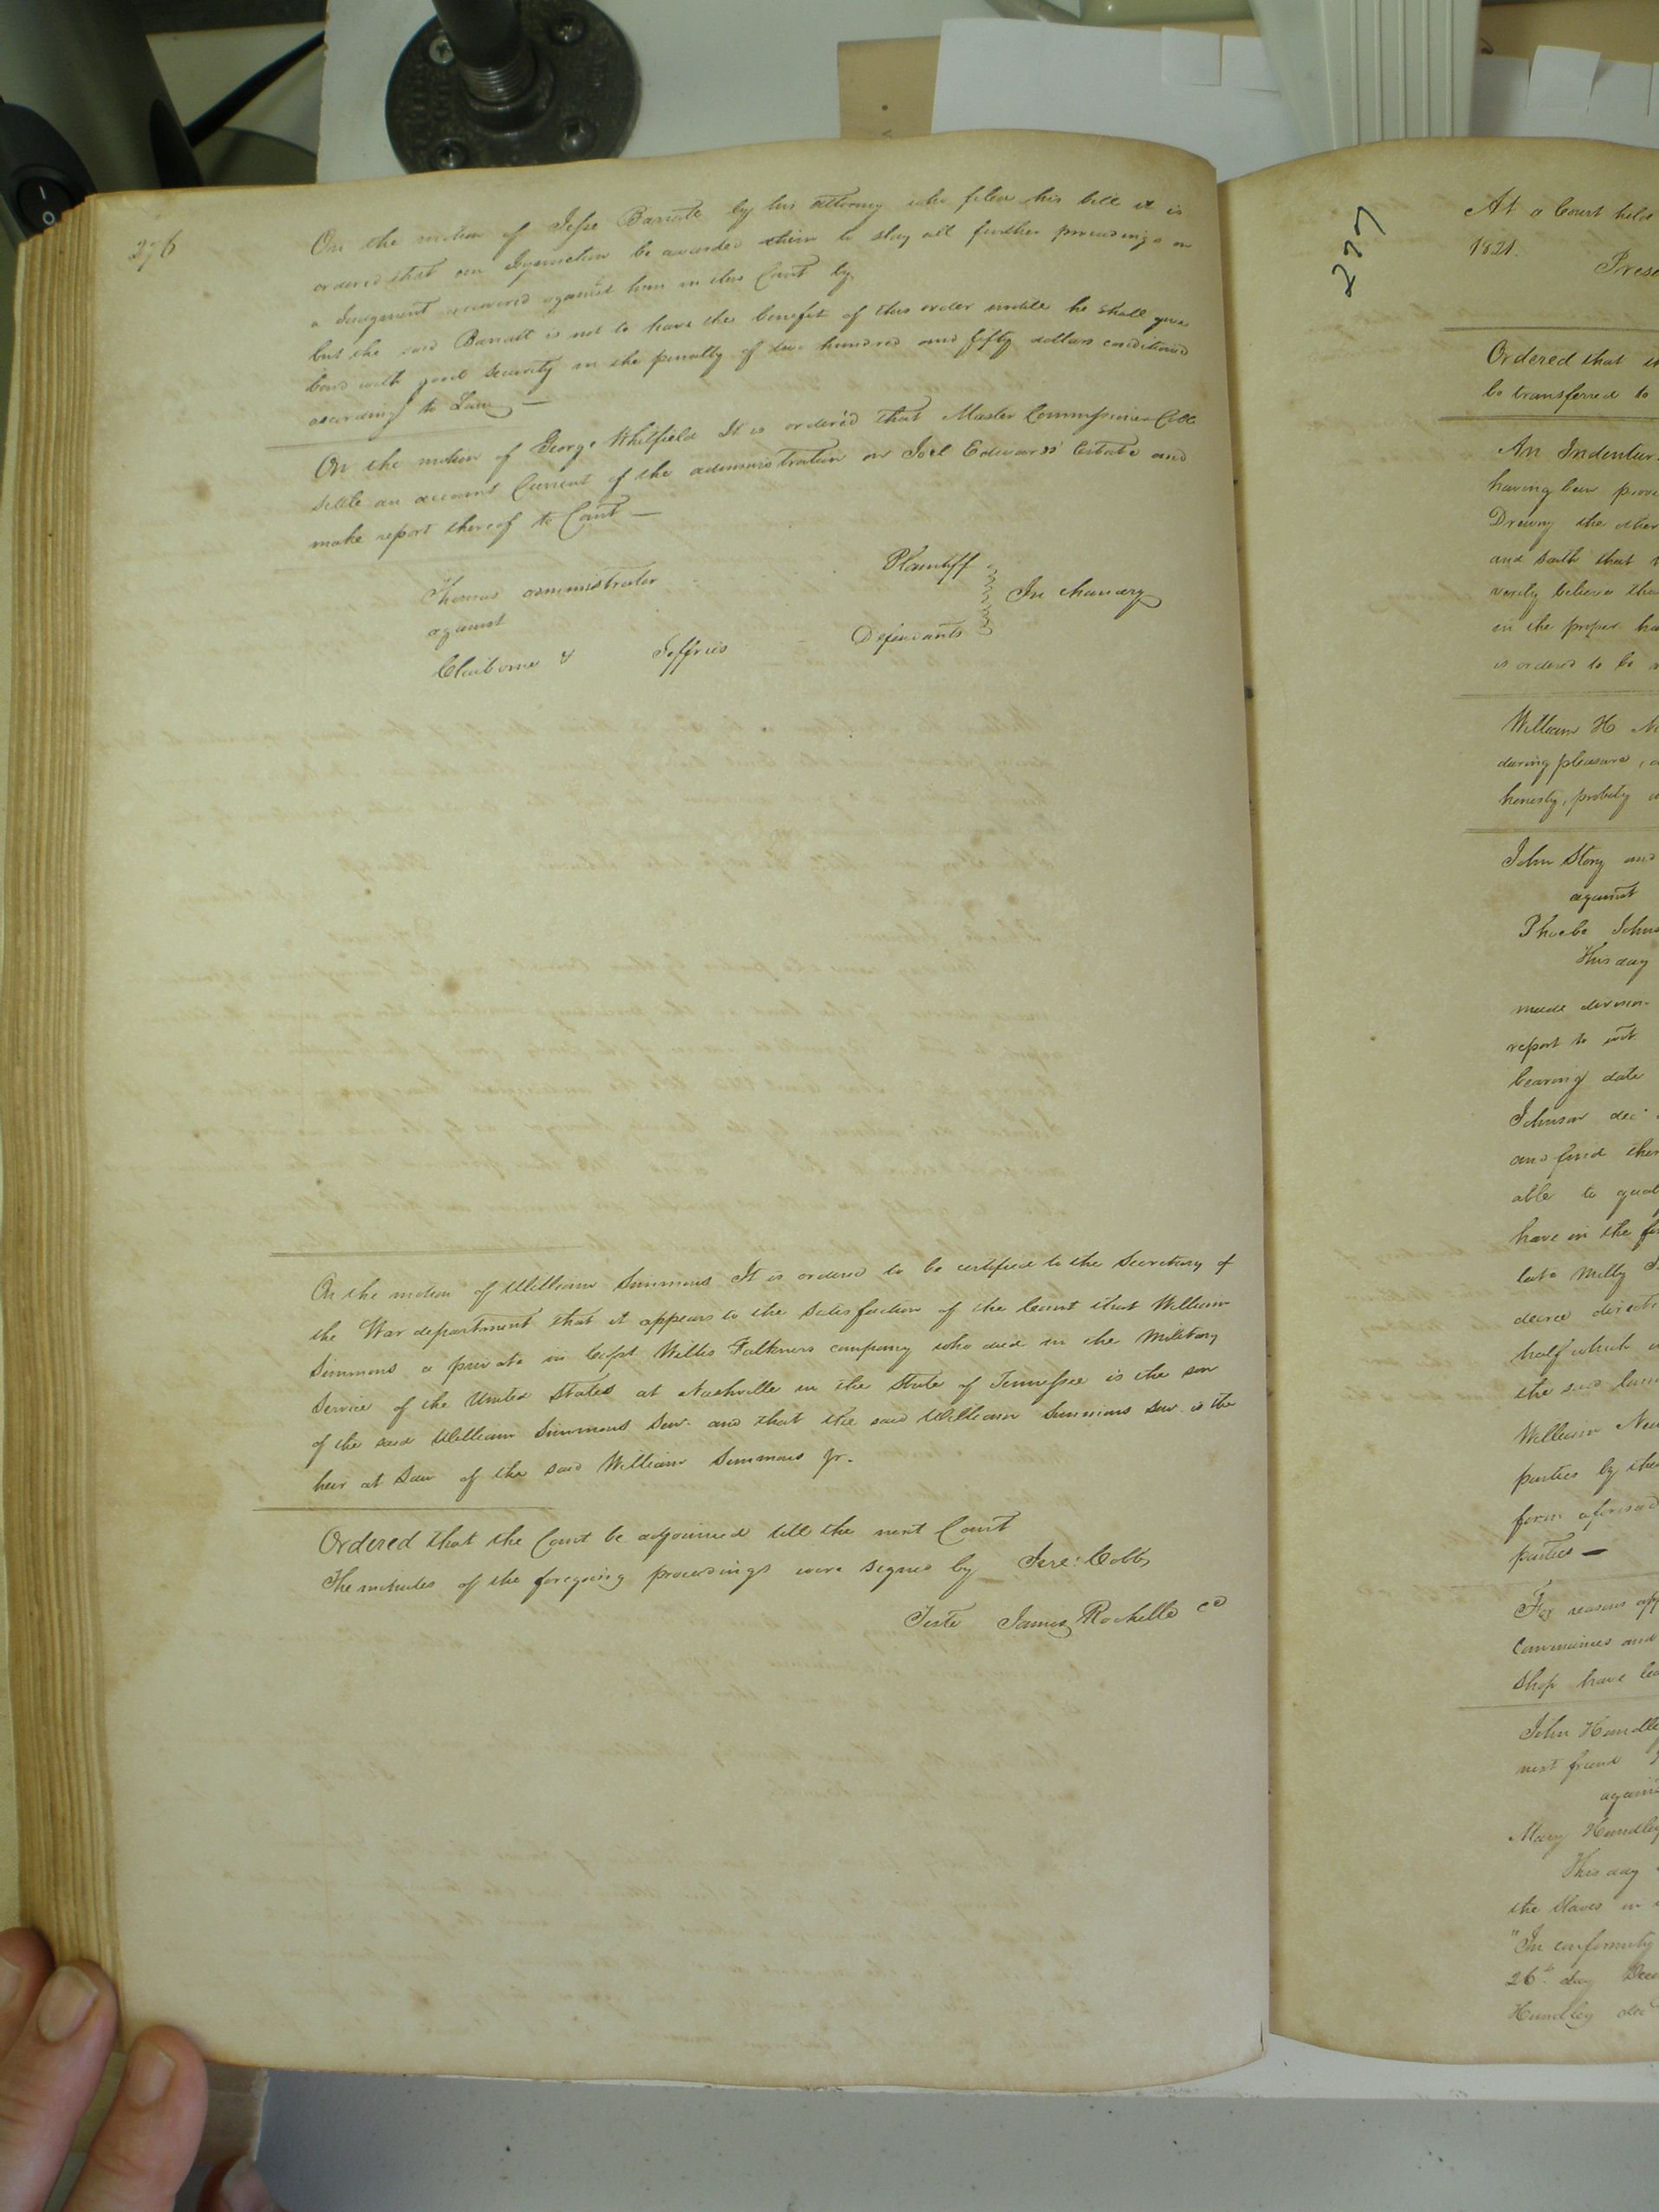 276
On the motion of Jesse Barrett by his attorney who filed his bill it is
ordered that an Injunction be awarded him to stay all further proceedings on
a Judgment recovered against him in this Court by
but the said Barrett is not to have the benefit of this order untill he shall give
bond with good security in the penalty of two hundred and fifty dollars conditioned
according to Law —
On the motion of George Whitfield It is ordered that Master Commissioner Cobb
settle an account Current of the administration on Joel Edwards' Estate and
make report thereof to Court —
Thomas administrator Plaintiff
against In chancery
Claiborne & Jeffries Defendants
On the motion of William Simmons It is ordered to be certified to the Secretary of
the War department that it appears to the satisfaction of the Court that William
Simmons a private in Capt Willis Falkners company who died in the Military
Service of the United States at Nashville in the State of Tennessee is the son
of the said William Simmons Senr. and that the said William Simmons Senr. is the
heir at Law of the said William Simmons Jr.
Ordered that the Court be adjourned till the next Court
The minutes of the foregoing proceedings were signed by Jere: Cobb
Teste James Rochelle CC
277
At a Court held
1821.
Ordered that
be transferred to
An
having been
Drewry the other
and saith that
verily believes
in the proper
is ordered to be
William H
during pleasure,
honesty, probity
John Story and
against
Phoebe
This day
made
report to wit
bearing date
Johnson decd
and find
able to
have in the
late Milly
decree
half which
the said
William
parties by
form aforesaid
parties —
For reasons
and
Shop have
John
next friend
Mary Hundley
This day
the Slaves in
"In conformity
26th day
Hundley decd